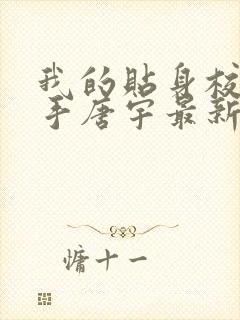 我的貼身校
手唐宇最新
慵十一